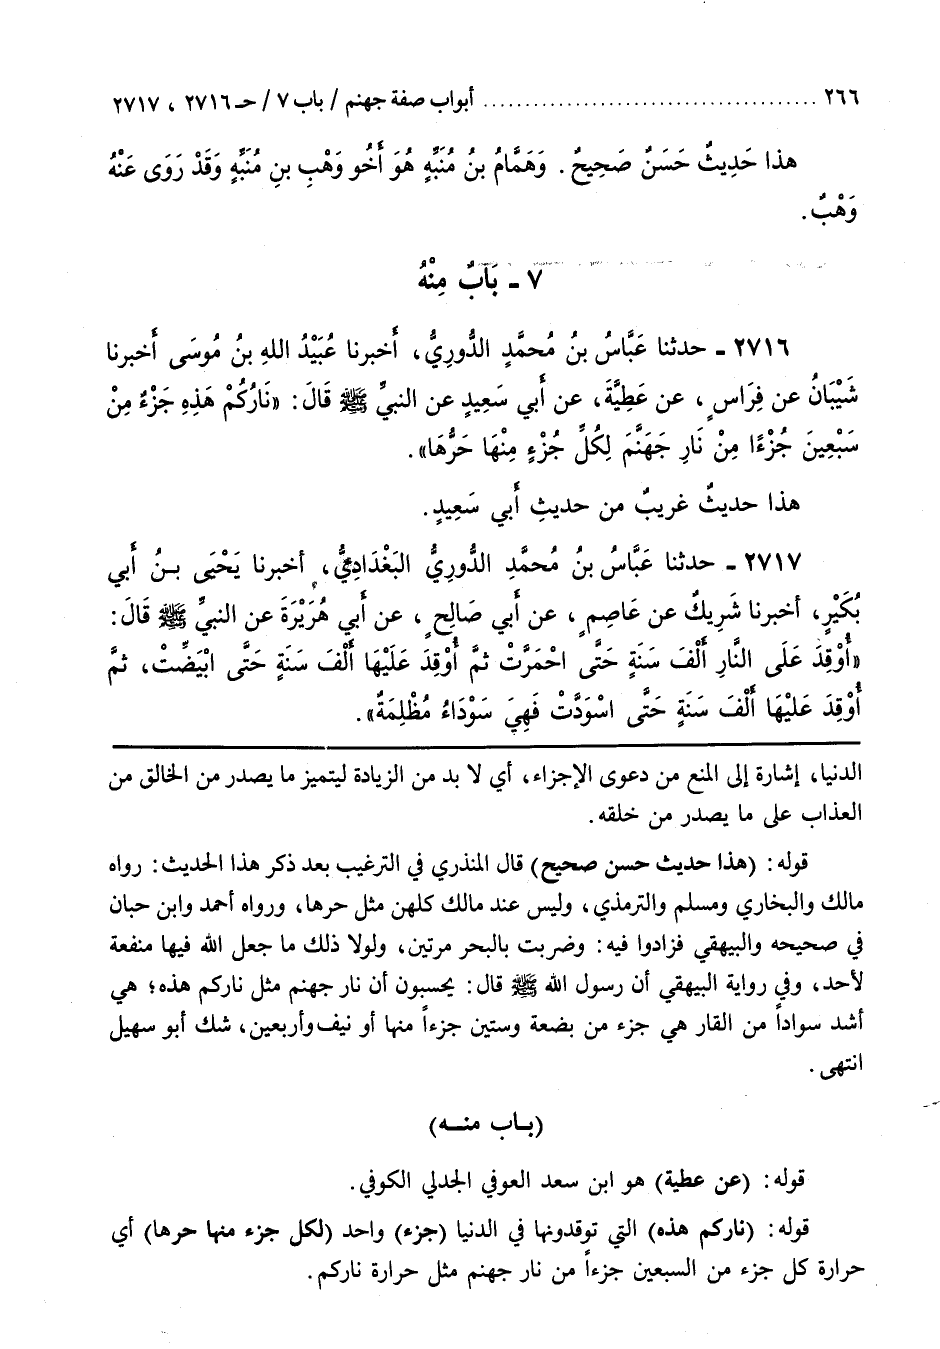 ٢٦٦ ........................................ أبواب صفة جهنم / باب ٧ / حـ ٢٧١٦ ، ٢٧١٧
هذا حَدِيثٌ حَسَنٌ صَحِيحٌ. وَهَمَّامُ بنُ مُنَبِّهٍ هُوَ أَخُو وَهْبِ بنِ مُنَبِّهٍ وَقَدْ رَوَى عَنْهُ
وَهْبٌ.
٧ ـ بَابٌ مِنْهُ
٢٧١٦ ـ حدثنا عَبَّاسُ بنُ مُحمَّدٍ الدُّورِيُّ، أَخبرنا عُبَيْدُ اللهِ بنُ مُوسَى أَخبرنا
شَيْبَانُ عن فِرَاسٍ، عن عَطِيَّةَ، عن أَبي سَعِيدٍ عن النبيِّ ﷺ قَالَ: «نَارُكُمْ هَذِهِ جَزْءٌ مِنْ
سَبْعِينَ جُزْءًا مِنْ نَارِ جَهَنَّمَ لِكُلِّ جُزْءٍ مِنْهَا حَرُّهَا».
هذا حديثٌ غريبٌ من حديثِ أَبي سَعِيدٍ.
٢٧١٧ ـ حدثنا عَبَّاسُ بنُ مُحمَّدِ الدُّورِيُّ البَغْدَادِيُّ، أخبرنا يَحْيَى بـنُ أَبي
بُكَيْرٍ، أخبرنا شَرِيكٌ عن عَاصِمٍ، عن أَبي صَالِحٍ، عن أَبي هُرَيْرَةَ عن النبيِّ ﷺ قَالَ:
«أُوْقِدَ عَلَى النَّارِ أَلْفَ سَنَةٍ حَتَّى احْمَرَّتْ ثمَّ أُوْقِدَ عَلَيْهَا أَلْفَ سَنَةٍ حَتَّى ابْيَضِّتْ، ثمَّ
أُوْقِدَ عَلَيْهَا أَلْفَ سَنَةٍ حَتَّى اسْوَدَّتْ فَهِيَ سَوْدَاءُ مُظْلِمَةٌ».
الدنيا، إشارة إلى المنع من دعوى الإجزاء، أي لا بد من الزيادة ليتميز ما يصدر من الخالق من
العذاب على ما يصدر من خلقه.
قوله: (هذا حديث حسن صحيح) قال المنذري في الترغيب بعد ذكر هذا الحديث: رواه
مالك والبخاري ومسلم والترمذي، وليس عند مالك كلهن مثل حرها، ورواه أحمد وابن حبان
في صحيحه والبيهقي فزادوا فيه: وضربت بالبحر مرتين، ولولا ذلك ما جعل الله فيها منفعة
لأحد، وفي رواية البيهقي أن رسول الله ﷺ قال: يحسبون أن نار جهنم مثل ناركم هذه؛ هي
أشد سواداً من القار هي جزء من بضعة وستين جزءاً منها أو نيف وأربعين، شك أبو سهيل
انتهى.
(بـاب منـه)
قوله: (عن عطية) هو ابن سعد العوفي الجدلي الكوفي.
قوله: (ناركم هذه) التي توقدونها في الدنيا (جزء) واحد (لكل جزء منها حرها) أي
حرارة كل جزء من السبعين جزءاً من نار جهنم مثل حرارة ناركم.